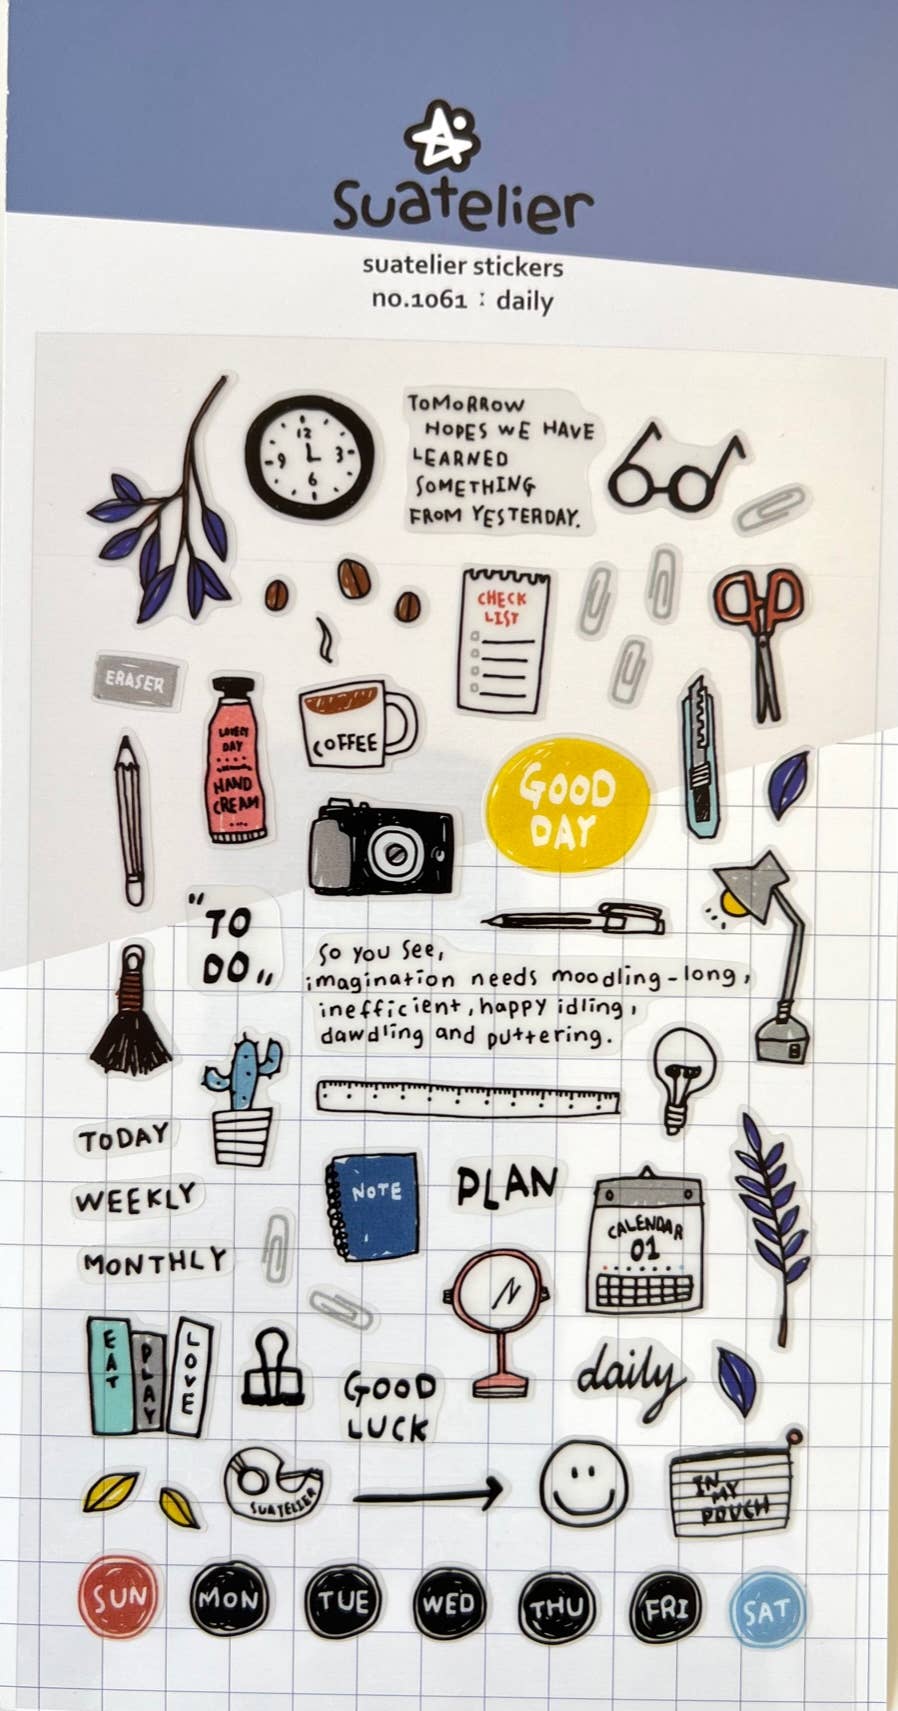 suatelier
suatelier stickers
no.1061 : daily
12
9 3
6
TOMORROW
HOPES WE HAVE
LEARNED
SOMETHING
FROM YESTERDAY.
CHECK
LIST
ERASER
LOVELY
DAY
HAND
CREAM
COFFEE
GOOD
DAY
"TO
DO"
so you see,
imagination needs moodling-long,
inefficient, happy idling,
dawdling and puttering.
TODAY
WEEKLY
MONTHLY
NOTE
PLAN
CALENDAR
01
EAT
PLAY
LOVE
GOOD
LUCK
daily
SUATELIER
IN
MY
POUCH
SUN MON TUE WED THU FRI SAT